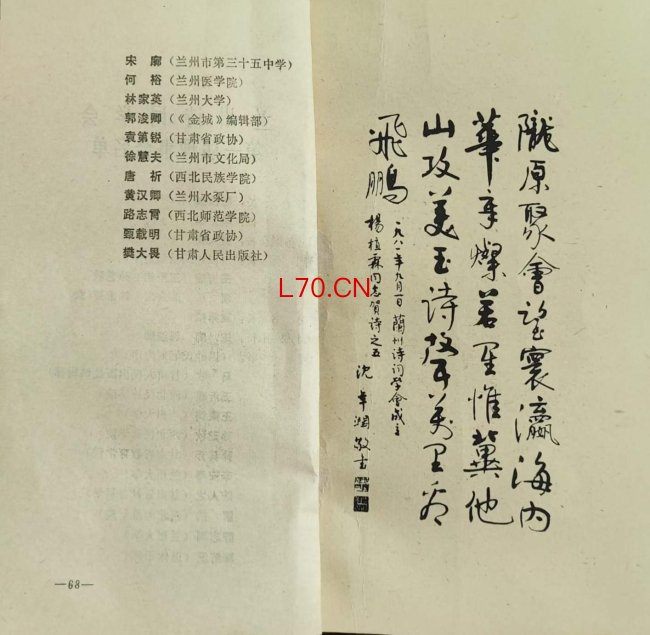 宋 廓(兰州市第三十五中学)
何 裕(兰州医学院)
林家英(兰州大学)
郭浚卿(《金城》编辑部)
袁第锐(甘肃省政协)
徐慧夫(兰州市文化局)
唐 祈(西北民族学院)
黄汉卿(兰州水泵厂)
路志霄(西北师范学院)
甄载明(甘肃省政协)
樊大畏(甘肃人民出版社)
—68—
隴原聚會望寰瀛海内
華章燦若星惟冀他
山攻美玉詩聲萬里看
飛鵬
一九八二年九月一日蘭州诗词学會成立
楊植霖同志賀诗之五
沈年润敬书
L70.CN